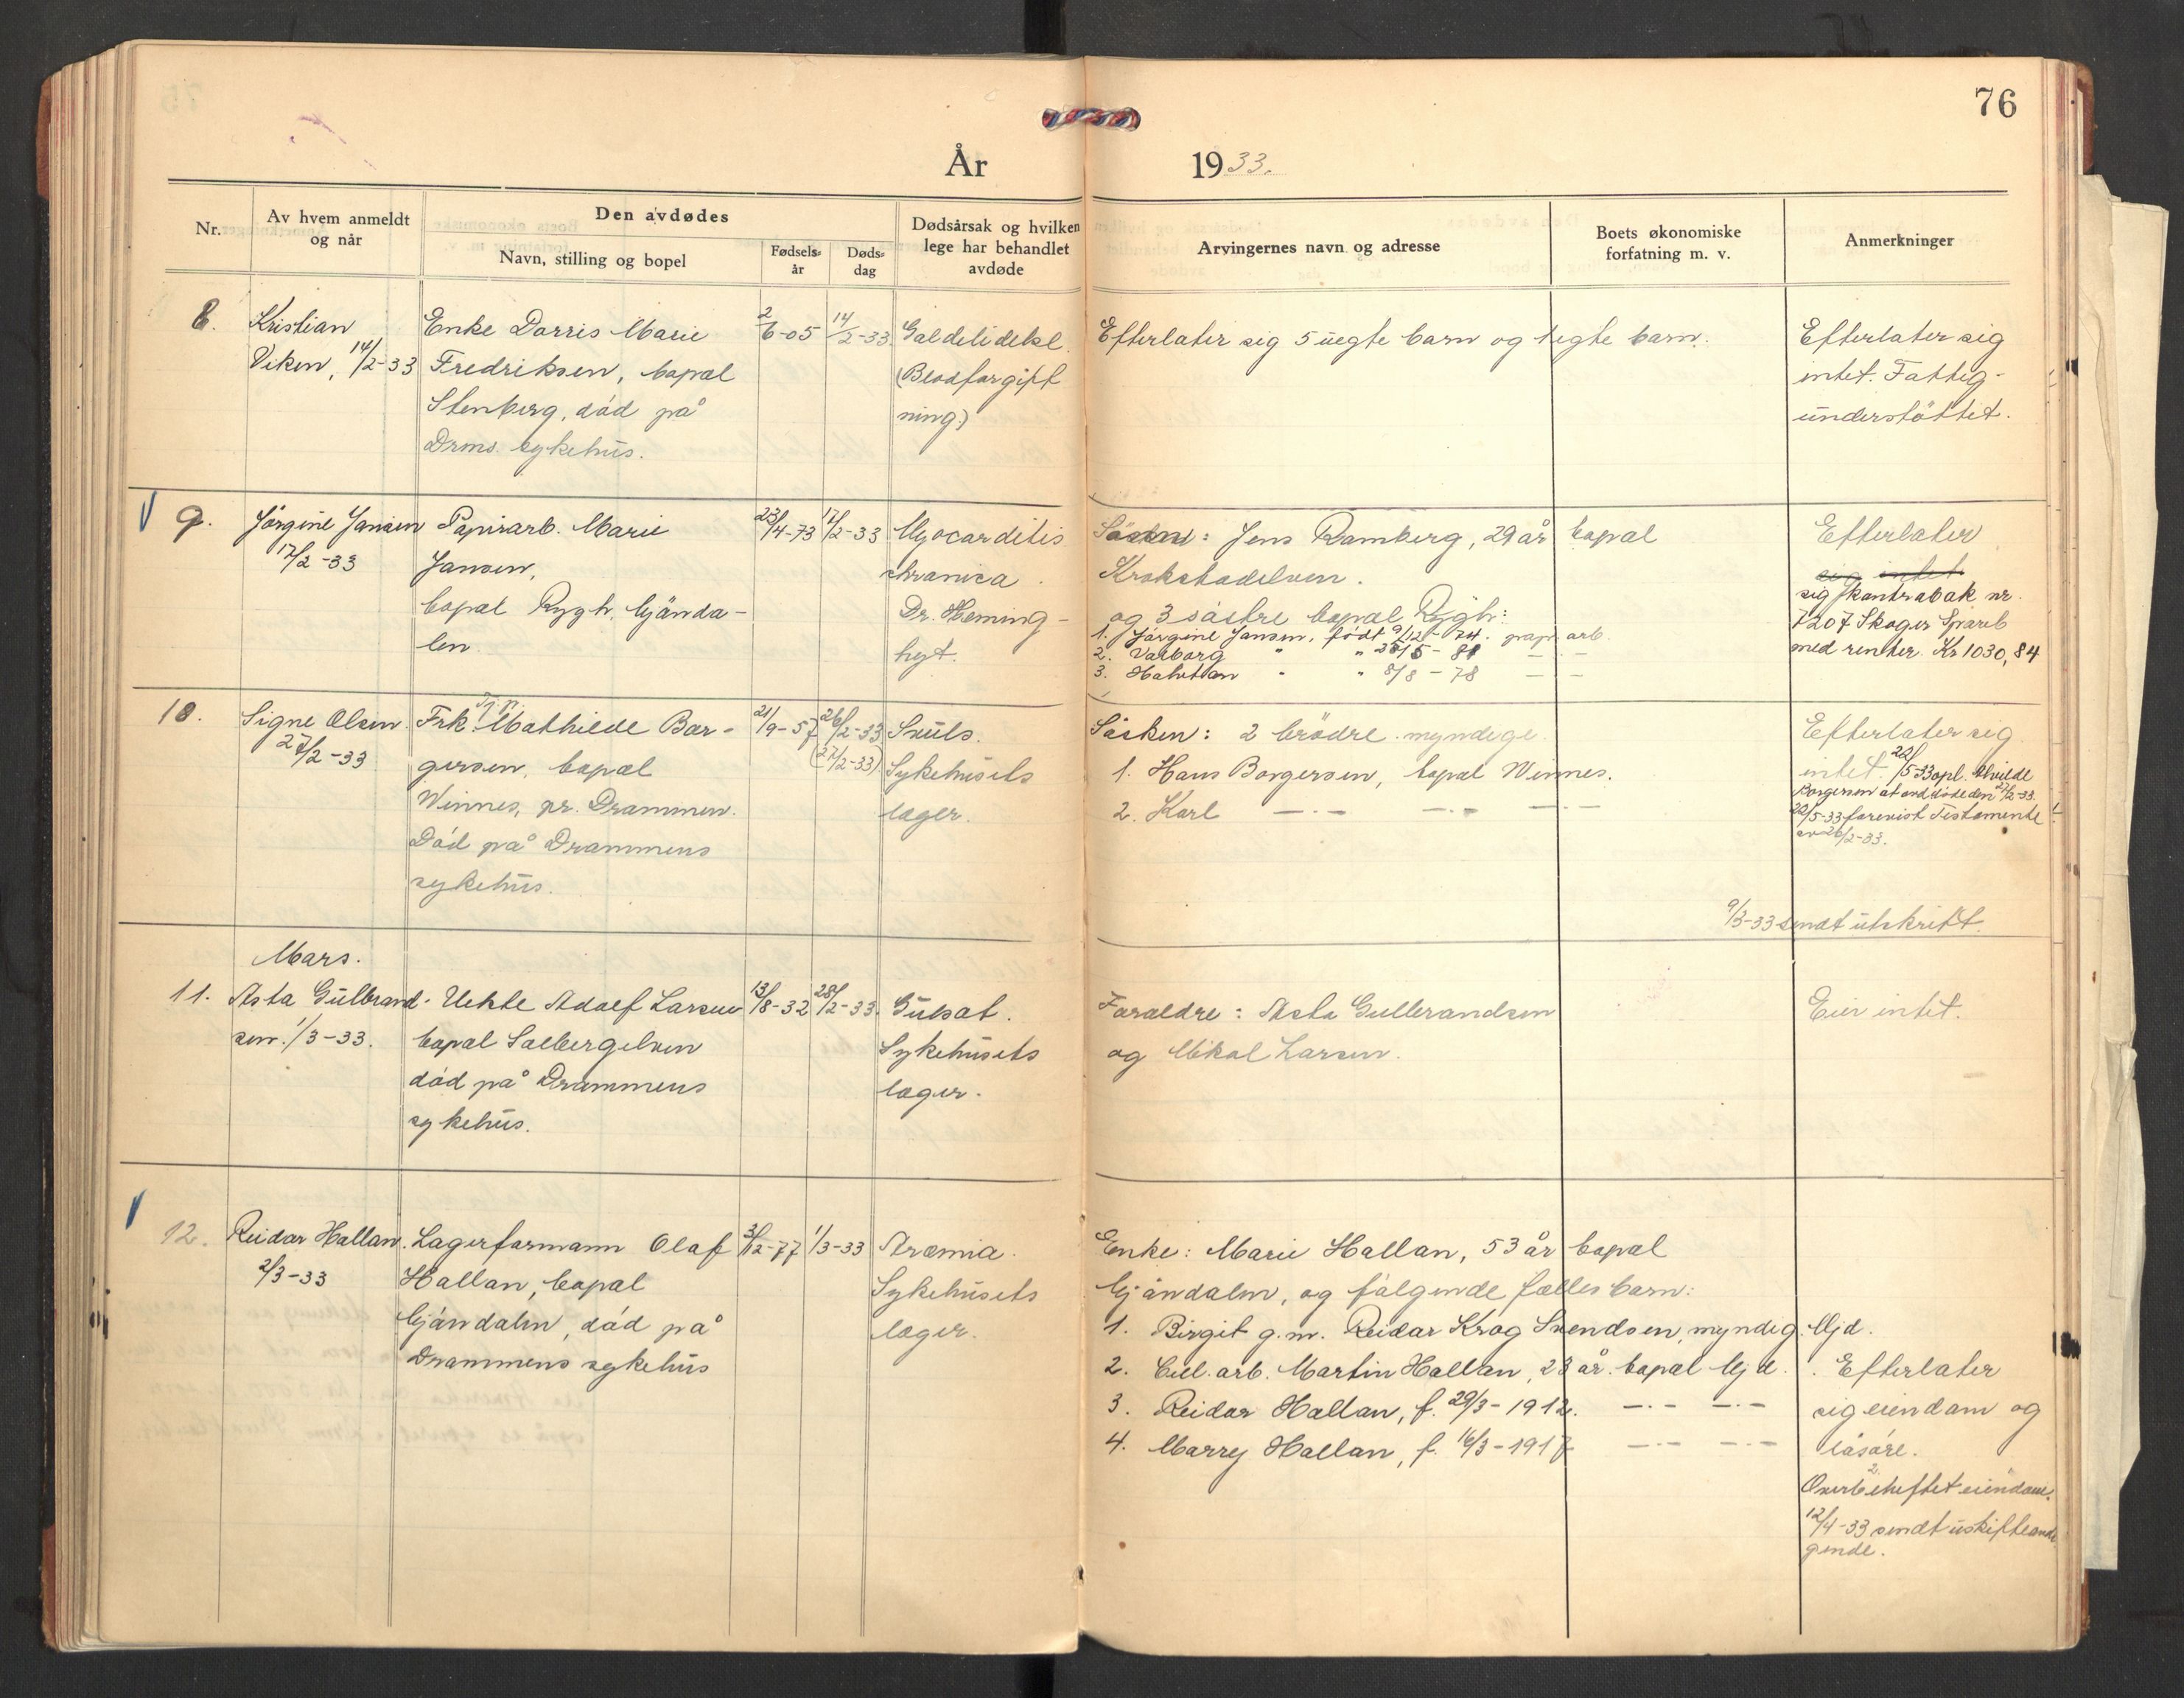 76
År 1933.
Nr.
Av hvem anmeldt
og når
Den avdødes
Navn, stilling og bopel
Fødsels-
år
Døds-
dag
Dødsårsak og hvilken
lege har behandlet
avdøde
Arvingernes navn og adresse
Boets økonomiske
forfatning m. v.
Anmerkninger
8.
Kristian
Viken, 14/2-33
Enke Dorris Marie
Fredriksen, bopæl
Stenberg, död på
Drms. sykehus.
2/6-05
14/2-33
(Blodforgift
ning)
Efterlater sig 5 uegte barn og 1 egte barn.
Efterlater sig
intet. Fattig-
understöttet.
9.
Jörgine Jansen
17/2-33
Papirarb. Marie
Jansen,
bopæl Rygh, Mjönda-
len
23/4-73
17/2-33
Myocarditis
chronica.
Dr. Heming-
hyt.
: Jens Ramberg, 29 år bopæl
Krokstadelven.
og 3 söstre bopæl Rygh:
1. Jörgine Jansen, födt 9/12-74. papr. arb.
2. Valborg " " — · —
3. " " 8/8-78 — · —
Efterlater
sig intet
sig kontrabok nr.
7207 Skoger Spareb
med renter. Kr 1030,84
10.
Signe Olsen.
27/2-33
Frk. Mathilde Bor-
gersen, bopæl
Winnes, pr. Drammen.
Död på Drammens
sykehus.
21/9-57
26/2-33
(27/2-33)
Svuls.
Sykehusets
læger.
Sösken: 2 brödre myndige.
1. Hans Borgersen, bopæl Winnes.
2. Karl — · — — · — — · —
Efterlater sig
intet. 22/5-33 opl.
Borgersen at avd döde den 27/2-33.
22/5-33 forevist Testamente
av 26/2-33.
9/3-33 sendt utskrift.
Mars.
11.
Asta Gulbrand-
sen. 1/3-33.
Uekte Adolf Larsen
bopæl Solbergelven
död på Drammens
sykehus.
13/8-32
28/2-33.
Gulsot.
Sykehusets
læger.
Foreldre: Asta Gulbrandsen
og Mikal Larsen.
Eier intet.
12.
Reidar Hallan.
2/3-33
Lagerformann Olaf
Hallan, bopæl
Mjöndalen, död på
Drammens sykehus
3/12-77
1/3-33
Uræmia.
Sykehusets
læger.
Enke: Marie Hallan, 53 år bopæl
Mjöndalen, og fölgende fælles barn:
1. Birgit g.m. Reidar Krog Svendsen, myndig. Mjd.
2. Cell. arb. Martin Hallan, 23 år. bopæl Mjd.
3. Reidar Hallan, f. 29/3-1912. — · — — · —
4. Marry Hallan, f. 16/3-1917 — · — — · —
Efterlater
sig eiendom og
lösöre.
Overbeheftet eiendom.
12/4-33 sendt uskifteand
gende.